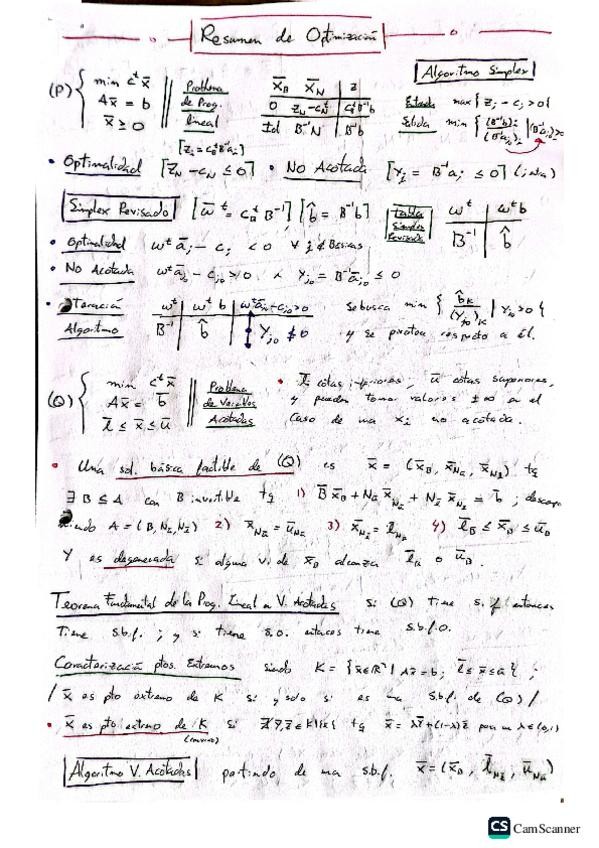 Resumen de Optimización
(P) { min cᵗx̄
Ax̄ = b
x̄ ≥ 0
Problema
de Prog.
lineal
x̄_B x̄_N | z
0 z_N-c_Nᵗ | c_Bᵗ B⁻¹b
Id B⁻¹N | B⁻¹b
Algoritmo Simplex
Entrada max { z_j - c_j > 0 {
Salida min { (B⁻¹b)_i / (B⁻¹a_j)_i | (B⁻¹a_j)_i > 0
[z_j = c_Bᵗ B⁻¹a_j]
• Optimalidad [z_N - c_N ≤ 0] • No Acotada [y_j = B⁻¹a_j ≤ 0]
Simplex Revisado [w̄ᵗ = c_Bᵗ B⁻¹] [b̂ = B⁻¹b]
Tabla
Simplex
Revisada
wᵗ | wᵗb
B⁻¹ | b̂
• Optimalidad wᵗa_j - c_j < 0 ∀ j ∉ Básicas
• No Acotada wᵗa_j₀ - c_j₀ > 0 ∧ y_j₀ = B⁻¹a_j₀ ≤ 0
Iteración
Algoritmo
wᵗ | wᵗ b | wᵗa_j₀ - c_j₀ > 0
B⁻¹ | b̂ | y_j₀ ≰ 0
Se busca min { b̂_K / (y_j₀)_K | y_j₀ > 0 {
y se pivota respecto a él.
(Q) { min cᵗx̄
Ax̄ = b̄
l̄ ≤ x̄ ≤ ū
Problema
de Variables
Acotadas
• l̄ cotas inferiores, ū cotas superiores,
y pueden tomar valores ±∞ en el
caso de una x_i no acotada.
• Una sol. básica factible de (Q) es x̄ = (x̄_B, x̄_Nū, x̄_Nl̄) tq
∃ B ⊆ A con B invertible tq 1) B x̄_B + Nū x̄_Nū + Nl̄ x̄_Nl̄ = b̄ ; descompo
niendo A = (B, Nū, Nl̄) 2) x̄_Nū = ū_Nū 3) x̄_Nl̄ = l̄_Nl̄ 4) l̄_B ≤ x̄_B ≤ ū_B
Y es degenerada si alguna v. de x̄_B alcanza l̄_B o ū_B.
Teorema Fundamental de la Prog. lineal en V. Acotadas Si (Q) tiene s.f. entonces
tiene s.b.f. ; y si tiene s.o. entonces tiene s.b.f.o.
Caracterización ptos. Extremos siendo K = { x̄ ∈ ℝⁿ | Ax̄ = b ; l̄ ≤ x̄ ≤ ū { ;
/ x̄ es pto extremo de K si y solo si es una s.b.f. de (Q) /
• x̄ es pto extremo de K si ∄ ȳ, z̄ ∈ K\{x{ tq x̄ = λȳ + (1-λ)z̄ para un λ ∈ (0,1)
Algoritmo V. Acotadas partiendo de una s.b.f. x̄ = (x̄_B, l̄_Nl̄, ū_Nū)
CS CamScanner